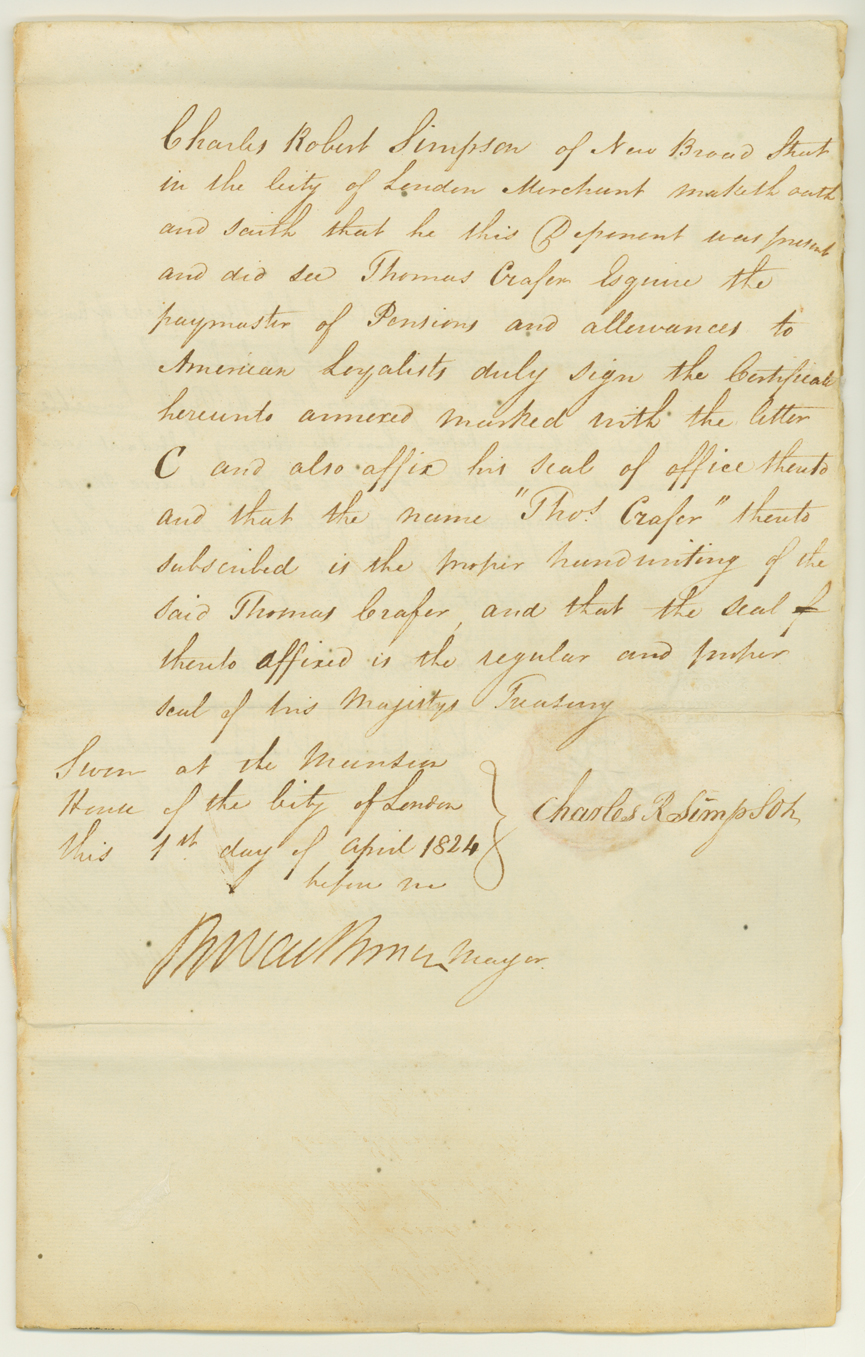 Charles Robert Simpson of New Broad Street
in the City of London Merchant maketh oath
and saith that he this Deponent was present
and did see Thomas Crafer Esquire the
paymaster of Pensions and allowances to
American Loyalists duly sign the Certificate
hereunto annexed marked with the letter
C and also affix his seal of office thereto
and that the name "Thos. Crafer" thereto
subscribed is the proper handwriting of the
said Thomas Crafer, and that the seal
thereto affixed is the regular and proper
seal of his Majestys Treasury
Sworn at the Mansion
House of the City of London
this 1st day of April 1824
before me
Charles R Simpson
Mayor.